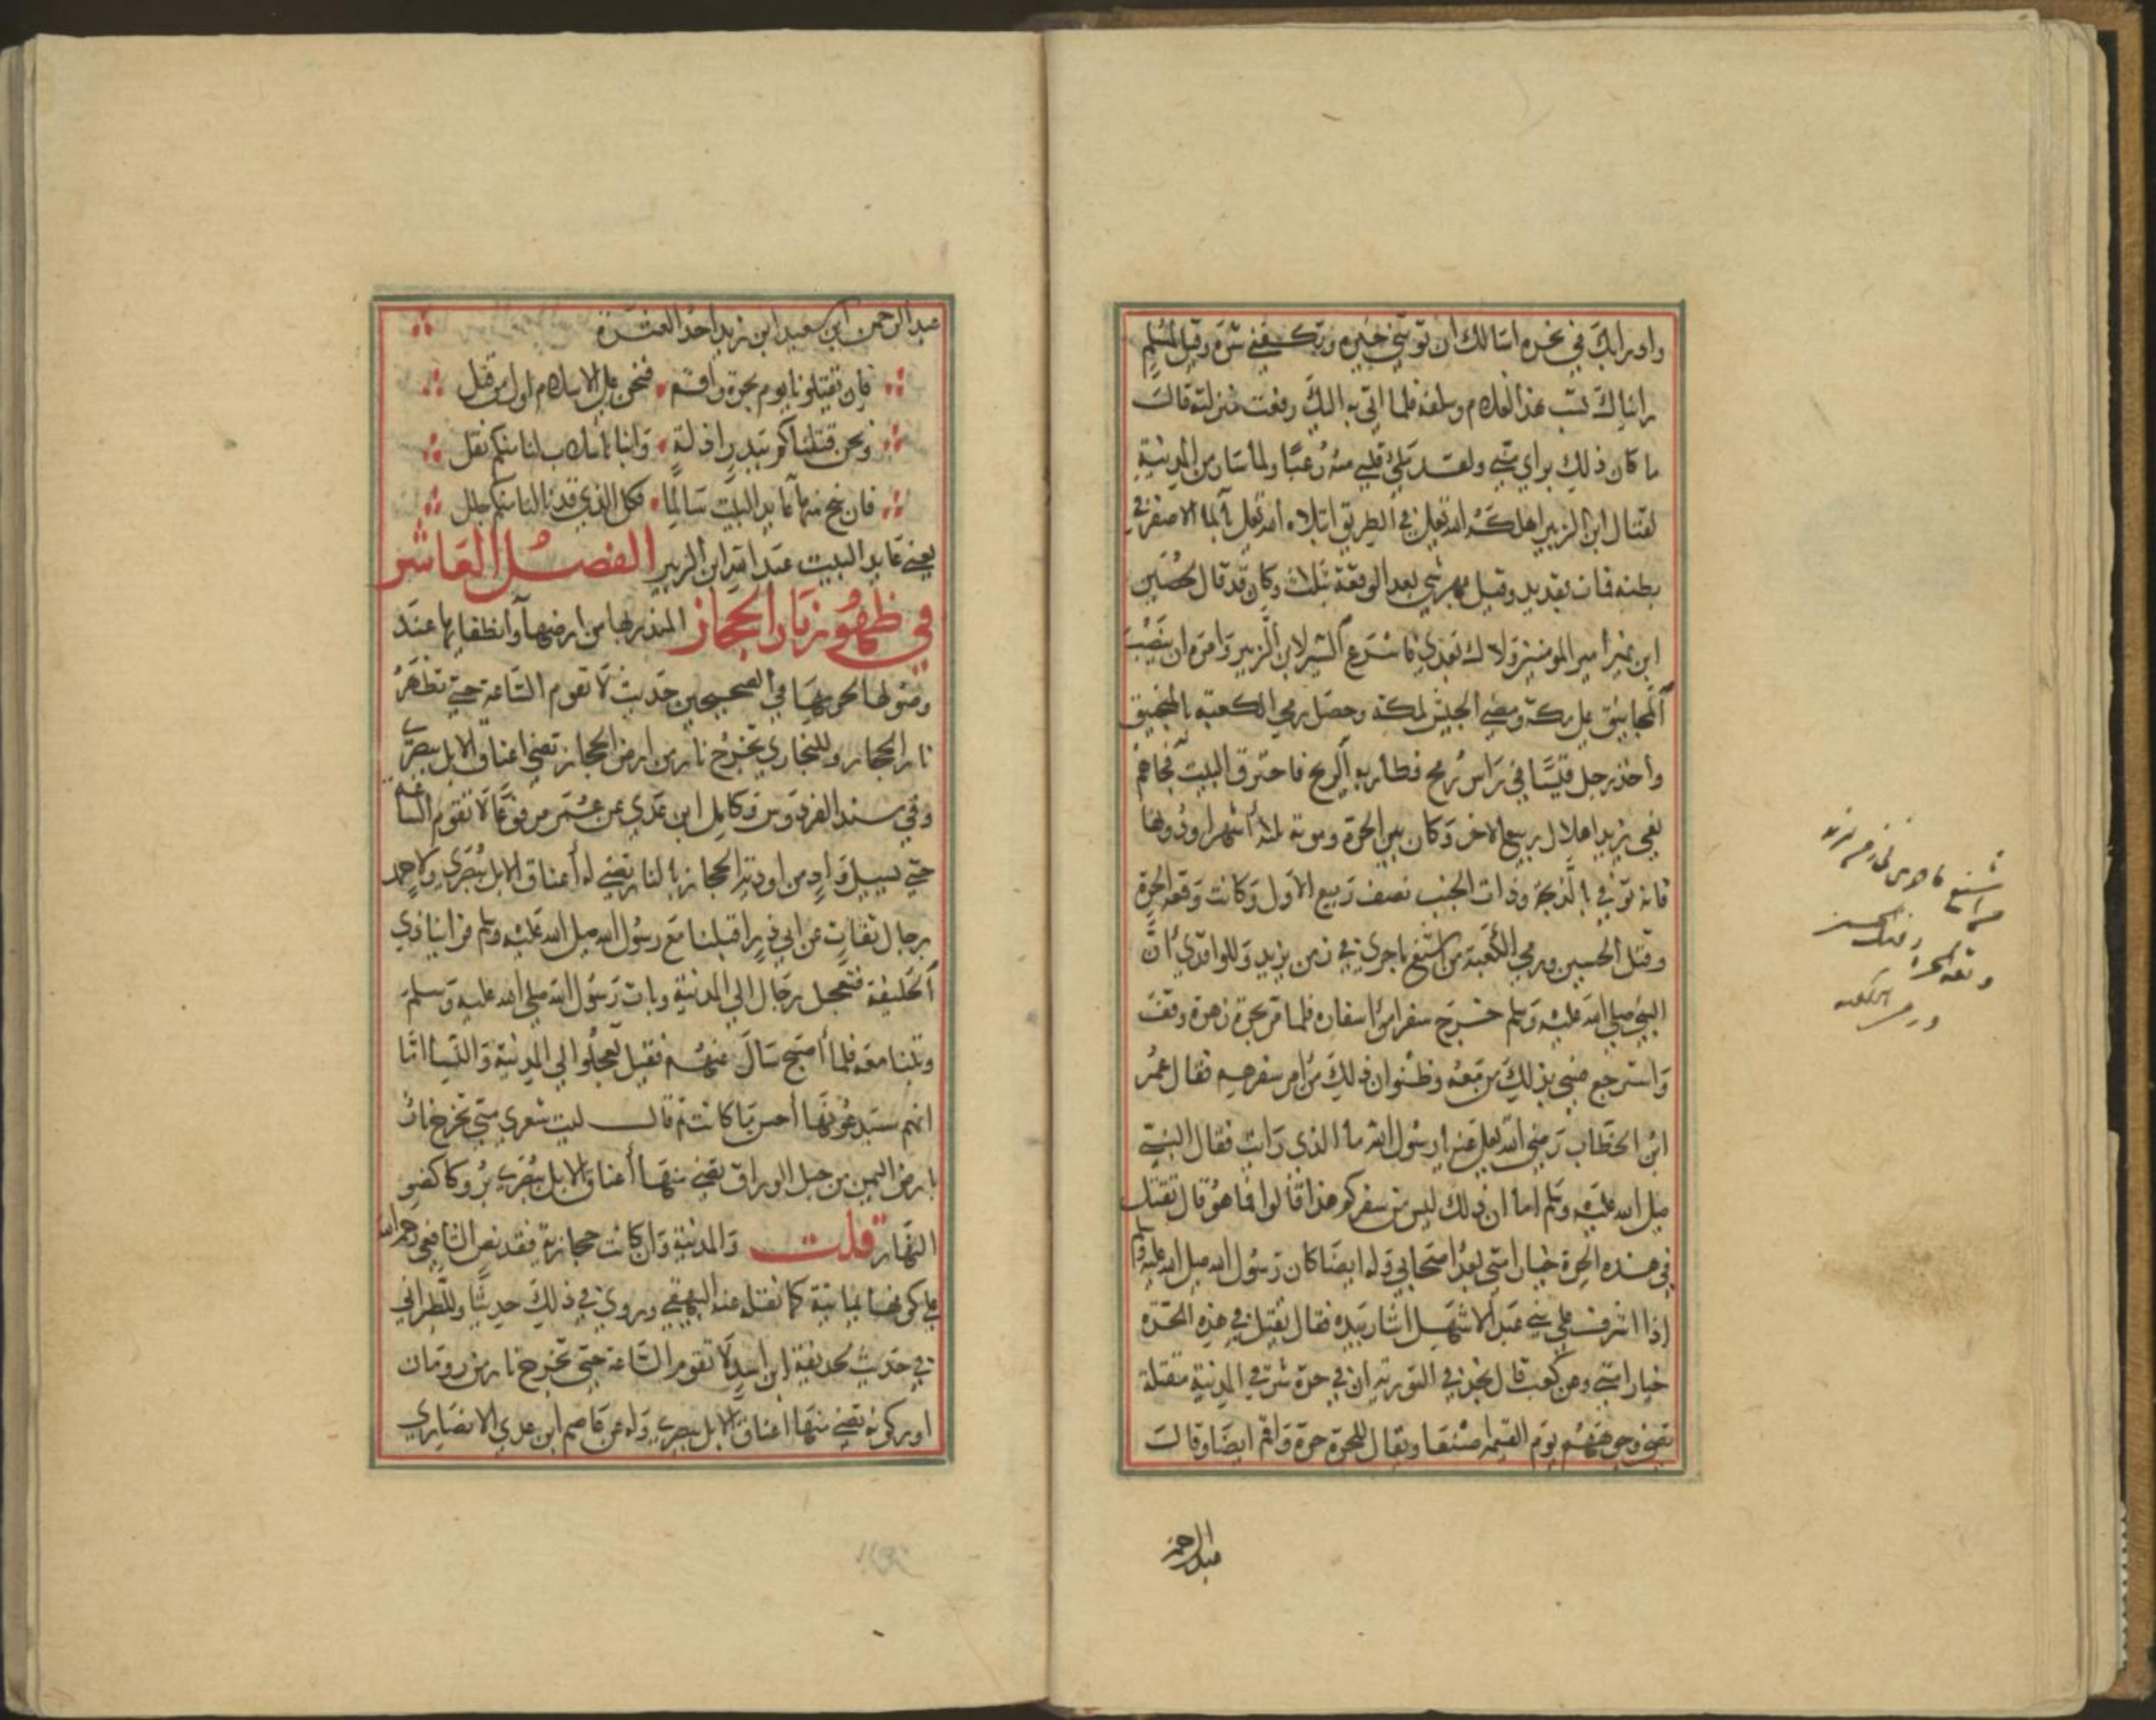 وادرابك في نحره اسالك ان توتيني خيره وتكفيني شره وقيل لمسلم
رايناك تسب هذا الغلام وسلفه فلما اتي به اليك رفعت منزلته قالت
ما كان ذلك براي مني ولقد ملئ قلبي منه رعبا ولما سار من المدينة
لقتال ابن الزبير اهلكه الله تعالى في الطريق ابتلاه الله تعالى بالماء الاصفر في
بطنه فمات بقديد وقيل بهرشي بعد الوقعة بثلاث وكان قد قال لحصين
ابن نمير امير المومنين ولاك بعدي فاسرع السير لابن الزبير وامره ان ينصب
المجانيق على مكة ومضى الجيش لمكة وحصل رمي الكعبة بالمنجنيق
واخذ رجل قبسا في راس رمح فطار به الريح فاحترق البيت فجاهم
نعي يزيد لهلال ربيع الاخر وكان بين الحرة وموته ثلثة اشهر او دونها
فانه توفي بالذبحة وذات الجنب نصف ربيع الاول وكانت وقعة الحرة
وقتل الحسين ورمي الكعبة من اشنع ما جرى في زمن يزيد وللواقدي ان
النبي صلى الله عليه وسلم خرج سفرا من اسفاره فلما مر بحرة زهرة وقف
واسترجع فسيء بذلك من معه وظنوا ان ذلك من امر سفرهم فقال عمر
ابن الخطاب رضي الله تعالى عنه يا رسول الله ما الذي رايت فقال النبي
صلى الله عليه وسلم اما ان ذلك ليس من سفركم هذا قالوا فما هو قال تقتل
في هذه الحرة خيار امتي بعد اصحابي وله ايضا كان رسول الله صلى الله عليه وسلم
اذا اشرف على بني عبد الاشهل اشار بيده فقال يقتل في هذه الحرة
خيار امتي وعن كعب قال نجد في التوراة ان في حرة شرقي المدينة مقتلة
تضي وجوههم يوم القيمة ويقال للحرة حرة واقم ايضا وقالت
عبد الرحمن
اشنع ما جرى في زمن يزيد
وقعة الحرة وقتل الحسين
ورمي الكعبه
عبد الرحمن ابن سعيد ابن زيد احد العشرة
فان تقتلونا يوم حرة واقم فنحن على الاسلام اول من قتل
ونحن قتلناكم ببدر اذلة وابنا باسلاب لنا منكم نفل
فان ينج منها عايذ البيت سالما فكل الذي قد نالنا منكم جلل
يعني عايذ البيت عبد الله ابن الزبير الفصل العاشر
في ظهور نار الحجاز المنذر بها من ارضها وانطفايها عند
وصولها لحرمها في الصحيحين حديث لا تقوم الساعة حتى تظهر
نار الحجاز وللبخاري تخرج نار من ارض الحجاز تضي اعناق الابل ببصرى
وفي مسند الفردوس وكامل ابن عدي عن عمر مرفوعا لا تقوم الساعة
حتى يسيل واد من اودية الحجاز بالنار تضي له اعناق الابل ببصرى ولاحمد
برجال ثقات عن ابي ذر اقبلنا مع رسول الله صلى الله عليه وسلم فراينا ذي
الحليفة فتعجل رجال الى المدينة وبات رسول الله صلى الله عليه وسلم
وبتنا معه فلما اصبح سال عنهم فقيل تعجلوا الى المدينة والنساء اما
انهم سيدعونها احسن ما كانت ثم قال ليت شعري متى تخرج نار
بارض اليمن من جبل الوراق تضي منها اعناق الابل ببصرى بروكا كضو
النهار قلت والمدينة وان كانت حجازية فقد نص الشافعي رحمه الله
على كونها يمانية كما نقله عنه البيهقي وروي في ذلك حديثا وللطبراني
في حديث لحذيفة ابن اسيد لا تقوم الساعة حتى تخرج نار من رومان
او ركوبة تضي منها اعناق الابل ببصرى وله عن عاصم ابن عدي الانصاري